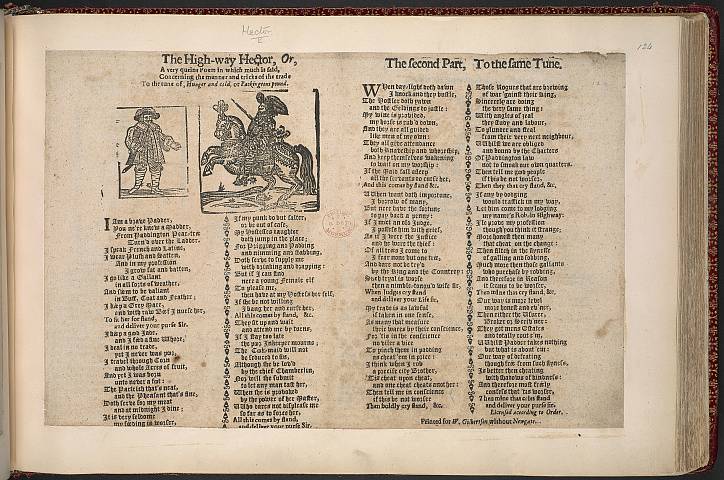 Hector
124
The High-way Hector, Or,
A very quaint Poem in which much is said,
Concerning the manner and tricks of the trade
To the tune of, Hunger and cold, or Packingtons pound.
I Am a brave Padder,
You ne're knew a Padder,
From Paddington Pear-tree
Turn'd over the Ladder.
I speak French and Latine,
I wear Plush and Satten,
And in my profession
I grow fat and batten,
I go like a Gallant
in all sorts of weather,
And seem to be valiant
in Buff, Coat and Feather;
I keep a Grey Mare,
To fit her for stand,
and deliver your purse Sir.
I keep a god Jade,
I deal in no trade,
yet I never was poor,
I travel through
and whole stores of fruit,
And yet I was born
unto never a
The Partrich that's neat,
and the Pheasant that's fine,
Doth serve for my meat
and at midnight I dine:
It is very seldome
my feeding is worser,
If my punk do but falter,
or be out of case,
My Hostesses daughter
doth jump in the place;
For Prigging and Padding
and nimming and stabbing,
Doth serve to supply me
with drinking and drabbing:
But if I can find
nere a young Female elf
To please me,
then have at my Hostess her self,
If she be not willing
I bang her and curse her,
All this comes by stand, &c.
They sit up and wait
and attend me by turns,
If I stay too late
the poor Inkeeper mourns;
The Cook-maid will not
be seduced to sin,
Although she be lov'd
by the chief Chamberlin,
Nor will she submit
to let any man task her,
When she is provoked
by the power of her Master,
Who dares not displease me
so far as to force her,
All this comes by stand,
and deliver your purse Sir.
The second Part, To the same Tune.
When day-light doth dawn
I knock and they bustle,
The Hostler doth yawn
and the Geldings do justle:
My wine is provided,
my horse is rub'd down,
And they are all guided
like men of my own:
They all give attendance
both Knaveship and whoreship,
And keep themselves wakening
to wait on my worship;
If the Maid fall asleep
all the servants do curse her,
And this comes by stand &c.
When I want both importune,
I borrow of many,
But nere have the fortune
to pay back a penny:
If I meet an old Judge,
I possess him with grief,
As if I were the Justice
and he were the thief:
Of all trades I come to
I fear none but one,
And dare not be try'd
by the King and the Countrey:
Such tryal is worse
then a nimble-tongu'd wife Sir,
When Judges cry stand
and deliver your life Sir,
My trade is as lawful
if taken in one sense,
As many that measure
their wares by their conscience.
For 'tis in the conscience
no vice a vice
To pinch them in padding
or cheat 'em in price:
I think when I rob
a precise city Brother,
'Tis cheat upon cheat,
and one cheat cheats another:
Then tell me in conscience
if this be not worser
Then boldly cry stand, &c.
Those Rogues that are brewing
of war 'gainst their king,
Sincerely are doing
the very same thing:
With angles of zeal
they study and labour,
To plunder and steal
from their very next neighbour,
Whilst we are obliged
and bound by the Charters
Of Paddington law
not to smoak our own quarters.
Then tell me god people
if this be not worser,
Then they that cry stand, &c.
If any by lodging
would traffick in my way,
Let him come to my lodging
my name's Rob. in Highway:
I'le avow my profession
though you think it strange,
More honest then many
that cheat on the change:
Then filch in the Synrise
of galling and sobbing,
Much more then those gallants
who purchase by robbing,
And therefore in Reason
it seems to be worser,
Then us that cry stand, &c.
Our way is more level
more honest and ev'ner,
Then either the Usurer,
Broker or Scriv'ner:
They get mens Estates
and totally rout 'em,
Whilst Padder takes nothing
but what is about 'em:
Our way of defeating
though free from such fyness,
Is better then cheating
with shadows of kindness:
And therefore most freely
confess that 'tis worser,
Then those that cries stand
and deliver your purse Sir.
Licensed according to Order.
Printed for W. Gilbertson without Newgate.